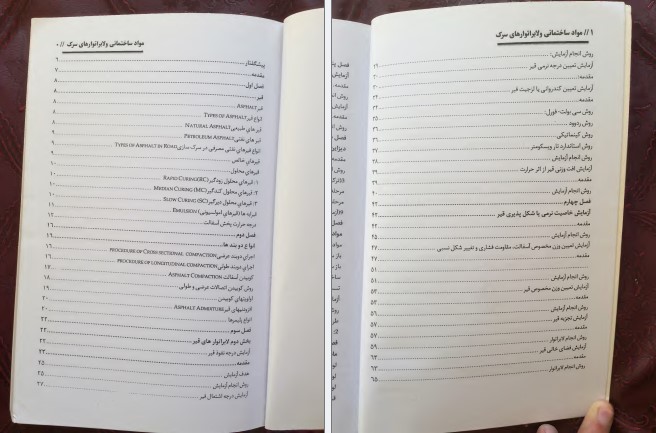 مواد ساختمانی ولابراتوارهای سرک // ۰
پیشگفتار ۶
مقدمه ۷
فصل اول ۸
قیر ۸
قیر ASPHALT ۸
انواع قیر TYPES OF ASPHALT ۸
قیر های طبیعی NATURAL ASPHALT ۹
قیر های نفتی PETROLEUM ASPHALT ۹
انواع قیرهای نفتی مصرفی در سرک سازی TYPES OF ASPHALT IN ROAD ۹
قیرهای خالص ۹
قیرهای محلول ۱۰
۱: قیرهای محلول زودگیر (RC) RAPID CURING ۱۰
۲: قیرهای محلول کندگیر (MC) MEDIAN CURING ۱۰
۳: قیرهای محلول دیرگیر (SC) SLOW CURING ۱۰
قیرابه ها (قیرهای امولسیونی) EMULSION ۱۱
درجه حرارت پخش آسفالت ۱۲
فصل دوم ۱۶
انواع دو بند ها ۱۶
اجرای دوبند عرضی PROCEDURE OF CROSS-SECTIONAL COMPACTION ۱۶
اجرای دوبند طولی PROCEDURE OF LONGITUDINAL COMPACTION ۱۶
کوبیدن آسفالت ASPHALT COMPACTION ۱۷
روش کوبیدن اتصالات عرضی و طولی ۱۸
اولویتهای کوبیدن ۱۹
افزودنیهای قیر ASPHALT ADMIXTURE ۲۰
انواع پلیمرها ۲۰
فصل سوم ۲۲
بخش دوم لابراتوار های قیر ۲۲
آزمایش درجه نفوذ قیر ۲۳
مقدمه ۲۳
هدف آزمایش ۲۵
روش انجام آزمایش ۲۵
آزمایش درجه اشتعال قیر ۲۷
۱ // مواد ساختمانی ولابراتوارهای سرک
روش انجام آزمایش: ۲۹
آزمایش تعیین درجه نرمی قیر ۳۰
مقدمه: ۳۰
آزمایش تعیین کندروانی یا لزجیت قیر ۳۴
مقدمه ۳۴
روش سی بولت- فورل: ۳۵
روش ردوود ۳۶
روش کینماتیکی ۳۶
روش استاندارد تار ویسکومتر ۳۷
روش انجام آزمایش ۳۸
آزمایش افت وزنی قیر از اثر حرارت ۳۹
مقدمه ۳۹
روش انجام آزمایش ۴۰
فصل چهارم ۴۲
آزمایش خاصیت نرمی یا شکل پذیری قیر ۴۳
مقدمه ۴۳
روش انجام آزمایش ۴۵
آزمایش تعیین وزن مخصوص آسفالت، مقاومت فشاری و تغییر شکل نسبی ۴۷
۵۱
روش انجام آزمایش ۵۱
آزمایش تعیین وزن مخصوص قیر ۵۳
مقدمه
روش انجام آزمایش ۵۶
آزمایش تجزیه قیر ۵۷
مقدمه ۵۷
روش انجام لابراتوار ۵۹
آزمایش فضای خالی قیر ۶۳
مقدمه ۶۳
روش انجام لابراتوار ۶۵